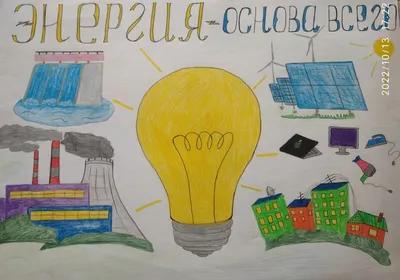 ЭНЕРГИЯ-ОСНОВА ВСЕГО
2022/10/13 11:22